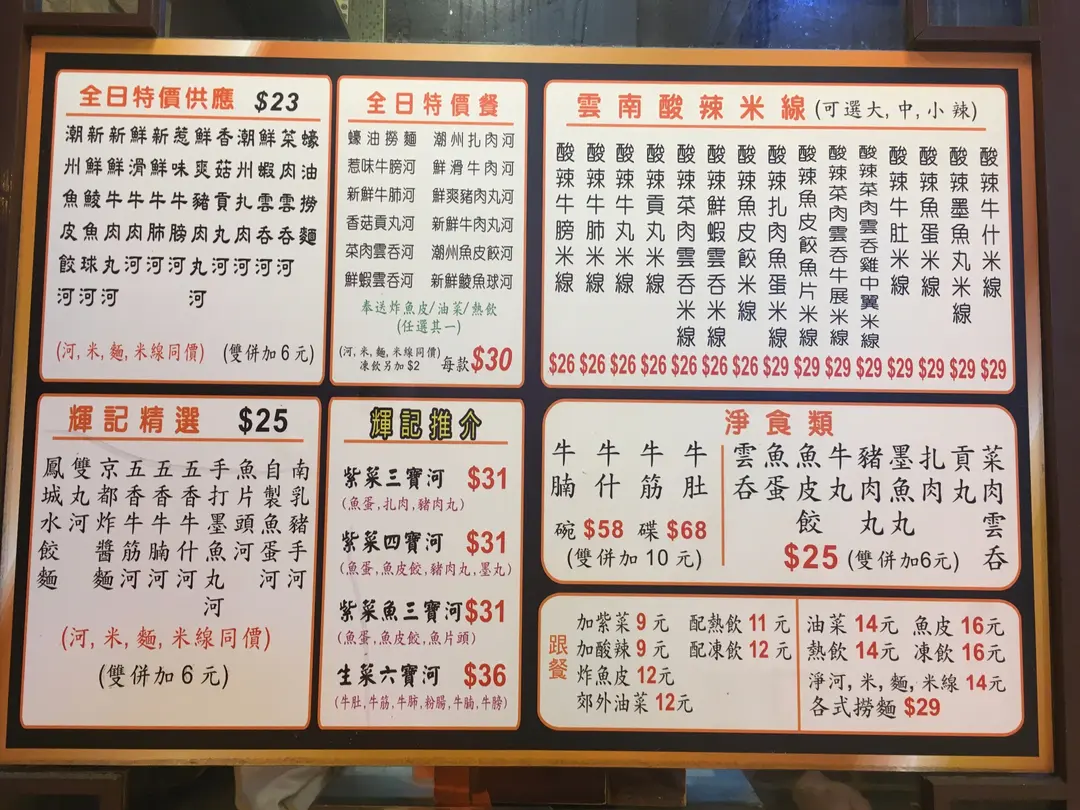 全日特價供應 $23
潮州魚皮餃河
新鮮鯪魚球河
新鮮牛肉丸河
鮮滑牛肉河
新鮮牛肺河
惹味牛膀河
鮮爽豬肉丸河
香菇貢丸河
潮州扎肉河
鮮蝦雲吞河
菜肉雲吞河
蠔油撈麵
(河,米,麵,米線同價) (雙併加6元)
全日特價餐
蠔油撈麵 潮州扎肉河
惹味牛膀河 鮮滑牛肉河
新鮮牛肺河 鮮爽豬肉丸河
香菇貢丸河 新鮮牛肉丸河
菜肉雲吞河 潮州魚皮餃河
鮮蝦雲吞河 新鮮鯪魚球河
奉送炸魚皮/油菜/熱飲
(任選其一)
(河,米,麵,米線同價)
凍飲另加$2 每款$30
雲南酸辣米線(可選大,中,小辣)
酸辣牛膀米線
酸辣牛肺米線
酸辣牛丸米線
酸辣貢丸米線
酸辣菜肉雲吞米線
酸辣鮮蝦雲吞米線
酸辣魚皮餃米線
酸辣扎肉魚蛋米線
酸辣魚皮餃魚片米線
酸辣菜肉雲吞牛展米線
酸辣菜肉雲吞雞中翼米線
酸辣牛肚米線
酸辣魚蛋米線
酸辣墨魚丸米線
酸辣牛什米線
$26 $26 $26 $26 $26 $26 $26 $29 $29 $29 $29 $29 $29 $29 $29
輝記精選 $25
鳳城水餃麵
雙丸河
京都炸醬麵
五香牛筋河
五香牛腩河
五香牛什河
手打墨魚丸河
魚片頭河
自製魚蛋河
南乳豬手河
(河,米,麵,米線同價)
(雙併加6元)
輝記推介
紫菜三寶河 $31
(魚蛋,扎肉,豬肉丸)
紫菜四寶河 $31
(魚蛋,魚皮餃,豬肉丸,墨丸)
紫菜魚三寶河 $31
(魚蛋,魚皮餃,魚片頭)
生菜六寶河 $36
(牛肚,牛筋,牛肺,粉腸,牛腩,牛膀)
淨食類
牛腩
牛什
牛筋
牛肚
碗 $58 碟 $68
(雙併加10元)
雲吞
魚蛋
魚皮餃
牛丸
豬肉丸
墨魚丸
扎肉
貢丸
菜肉雲吞
$25 (雙併加6元)
跟餐
加紫菜 9 元 配熱飲 11 元
加酸辣 9 元 配凍飲 12 元
炸魚皮 12元
郊外油菜 12元
油菜 14元 魚皮 16元
熱飲 14元 凍飲 16元
淨河,米,麵,米線 14元
各式撈麵 $29